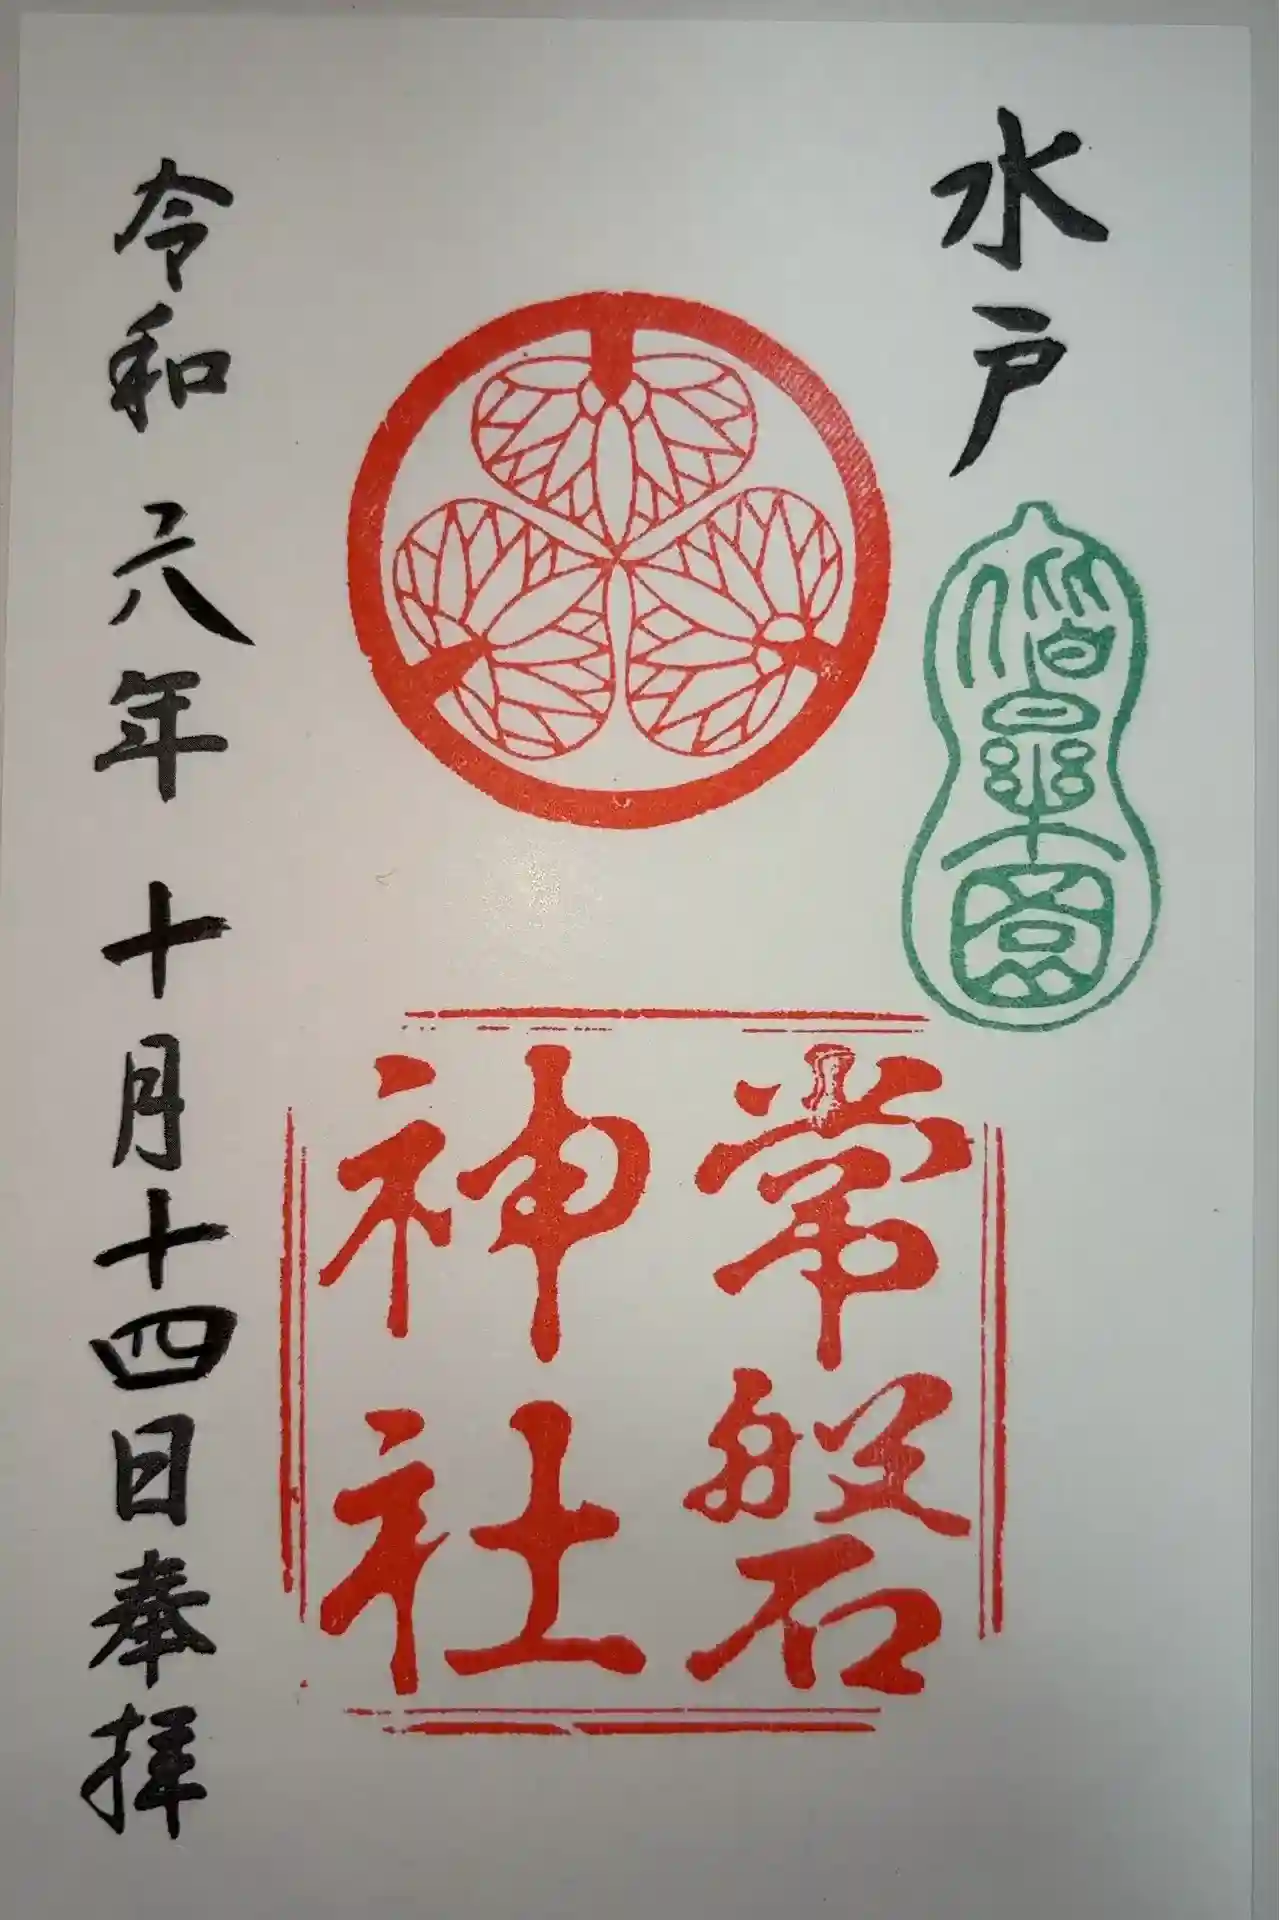 水戸
偕樂園
常磐
神社
令和六年十月十四日奉拝